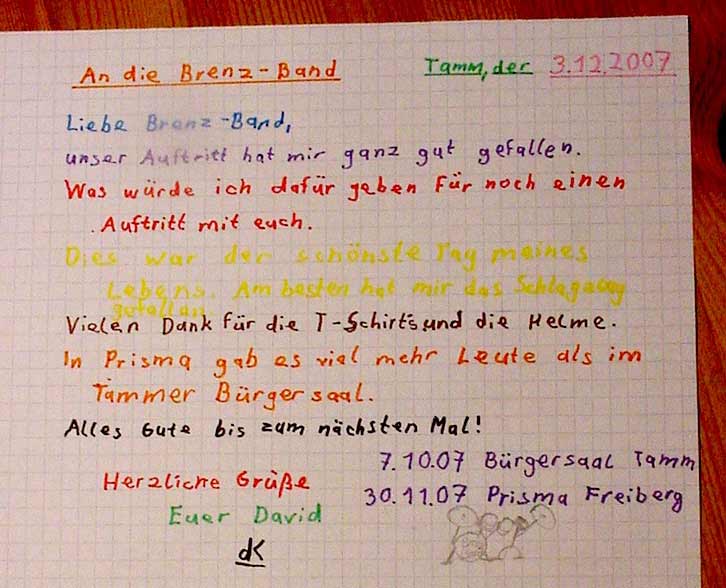 An die Brenz-Band
Tamm, der 3.12.2007
Liebe Brenz-Band,
unser Auftritt hat mir ganz gut gefallen.
Was würde ich dafür geben für noch einen
Auftritt mit euch.
Dies war der schönste Tag meines
Lebens. Am besten hat mir das Schlagzeug
gefallen
Vielen Dank für die T-Schirt's und die Helme.
In Prisma gab es viel mehr Leute als im
Tammer Bürgersaal.
Alles Gute bis zum nächsten Mal!
7.10.07 Bürgersaal Tamm
Herzliche Grüße
30.11.07 Prisma Freiberg
Euer David
dK